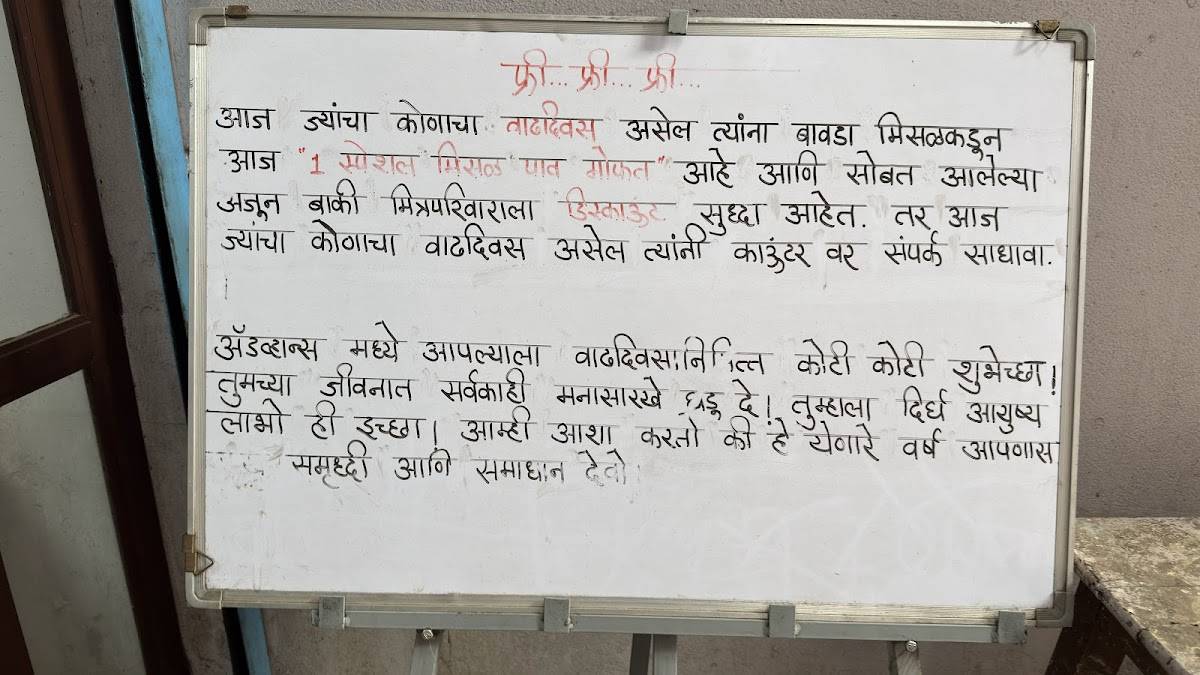 फ्री... फ्री... फ्री...
आज ज्यांचा कोणाचा वाढदिवस असेल त्यांना बावडा मिसळकडून
आज "1 स्पेशल मिसळ पाव मोफत" आहे आणि सोबत आलेल्या
अजून बाकी मित्रपरिवाराला डिस्काऊंट सुध्दा आहेत. तर आज
ज्यांचा कोणाचा वाढदिवस असेल त्यांनी काऊंटर वर संपर्क साधावा.
ॲडव्हान्स मध्ये आपल्याला वाढदिवसानिमित्त कोटी कोटी शुभेच्छा!
तुमच्या जीवनात सर्वकाही मनासारखे घडू दे! तुम्हाला दिर्घ आयुष्य
लाभो ही इच्छा! आम्ही आशा करतो की हे येणारे वर्ष आपणास
समृध्दी आणि समाधान देवो